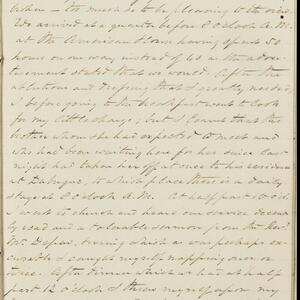 taken — too much so to be pleasing to the mind.
We arrived at a quarter before 8 O'clock A.M.
at the American House having spent 50
hours on our way instead of 40 as the adver
tisement stated that we would. After the
ablutions and dressing that I greatly needed,
& before going to the breakfast went to look
for my little charge, but I found that the
brother whom she had expected to meet and
who had been waiting here for her since last
night had taken her off at once to his residence
at Dubuque, to which place there is a daily
stage at 8 O'clock A.M. At half past 10 O'cl.
I went to church and heard our service decent-
ly read and a tolerable sermon from the Revd
Mr. during which as was perhaps ex-
cusable I caught myself napping once or
twice. After dinner which we had at half
past 12 O'clock I threw myself upon my